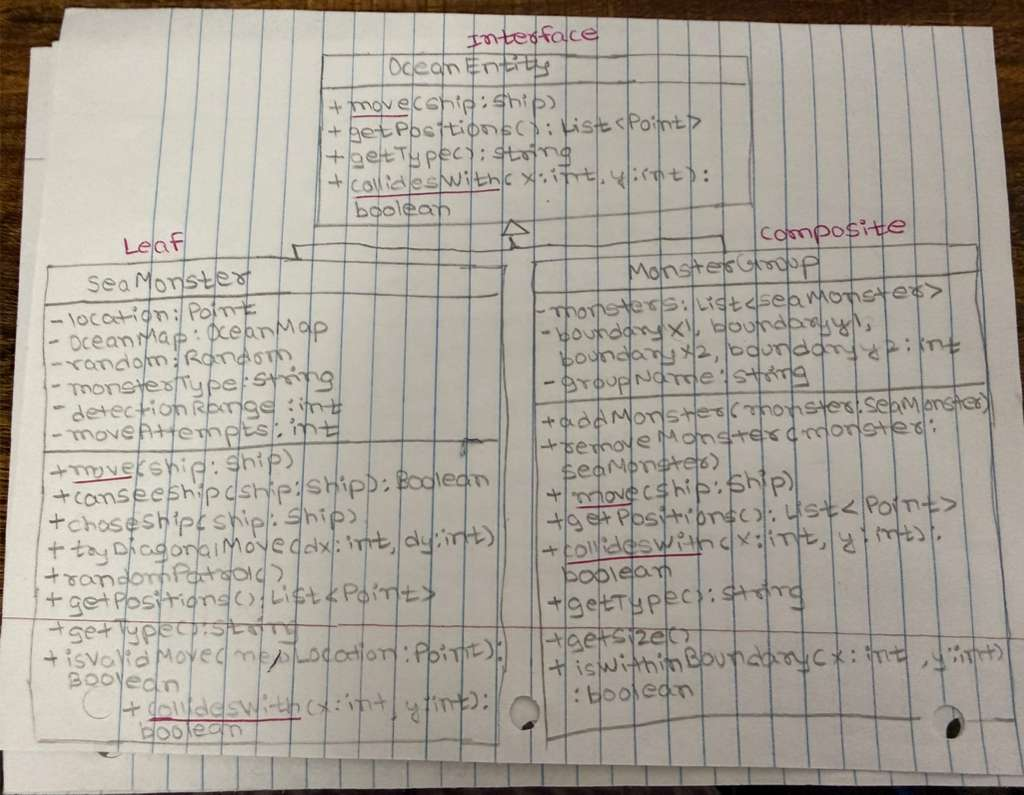 Interface
OceanEntity
+ move(ship: Ship)
+ getPositions(): List<Point>
+ getType(): string
+ collidesWith(x:int, y:int):
boolean
Leaf
SeaMonster
- location: Point
- oceanMap: OceanMap
- random: Random
- monsterType: string
- detectionRange: int
- moveAttempts: int
+ move(ship: Ship)
+ canseeship(ship: Ship): Boolean
+ choseShip(ship: Ship)
+ tryDiagonalMove(dx: int, dy: int)
+ randomPatrol()
+ getPositions(): List<Point>
+ getType(): string
+ isValidMove(newLocation: Point):
Boolean
+ collidesWith(x: int, y: int):
boolean
composite
MonsterGroup
- monsters: List<seaMonster>
- boundaryX1, boundaryY1,
boundaryX2, boundaryY2: int
- groupName: string
+ addMonster(monster: seaMonster)
+ removeMonster(monster:
seaMonster)
+ move(ship: Ship)
+ getPositions(): List<Point>
+ collidesWith(x: int, y: int):
boolean
+ getType(): string
+ getsize()
+ isWithinBoundary(x: int, y: int)
: boolean